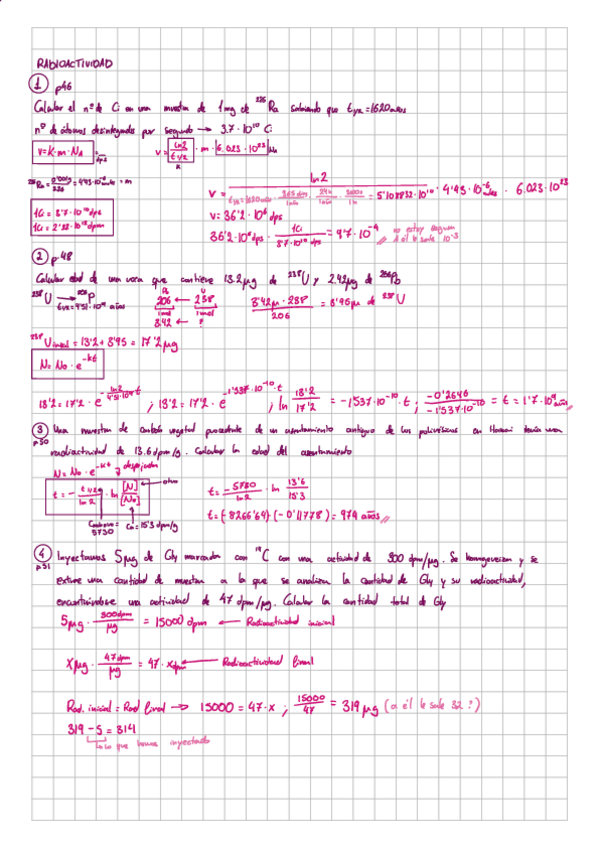 RADIOACTIVIDAD
① p46
Calcular el nº de Ci en una muestra de 1mg de ²²⁶Ra sabiendo que t1/2=1620 años
nº de átomos desintegrados por segundo → 3.7·10¹⁰ Ci
V=K·m·NA
dps
V= ln2/t1/2 · m · 6.023·10²³
1Ci = 3'7·10¹⁰ dps
1Ci = 2'22·10¹² dpm
V= ln2 / = 5'108832·10¹⁰ · 4'43·10⁻⁶ moles · 6.023·10²³
V= 36'2·10⁶ dps
36'2·10⁶ dps · 1Ci / 3'7·10¹⁰ dps = 9'7·10⁻⁴
② p48
Calcular edad de una roca que contiene 13.2µg de ²³⁸U y 2.42µg de ²⁰⁶Pb
206 ← 238
1mol 1mol
3'42 ← ?
3'42µ · 238 / 206 = 3'95µ de ²³⁸U
²³⁸U inicial = 13'2 + 3'95 = 17'2µg
N = No · e^-kt
; ln 13'2 / 17'2 = -1'537·10⁻¹⁰ · t ; -0'2646 / -1'537·10⁻¹⁰ = t = 1'7·10⁹ años
③ Una muestra de carbón vegetal procedente de un asentamiento antiguo de los polinésicos en Hawai tenía una
radiactividad de 13.6 dpm/g. Calcular la edad del asentamiento
p50
N = No · e^-kt → despejada
t = - t1/2 / ln2 · ln [N] / [No]
5730
Co = 15'3 dpm/g
t = -5730 / ln2 · ln 13'6 / 15'3
t = (-8266'64)(-0'11778) = 974 años
④ Inyectamos 5µg de Gly marcada con ¹⁴C con una actividad de 300 dpm/µg. Se homogeneizan y se
p51
extrae una cantidad de muestra a la que se analiza la cantidad de Gly y su radioactividad,
encontrándose una actividad de 47 dpm/µg. Calcular la cantidad total de Gly
5µg · 300dpm / µg = 15000 dpm ← Radioactividad inicial
Xµg · 47dpm / µg = 47·X dpm ← Radioactividad final
Rad. inicial = Rad final → 15000 = 47·X ; 15000 / 47 = 319µg (a él le sale 32?)
319 - 5 = 314
lo que hemos inyectado